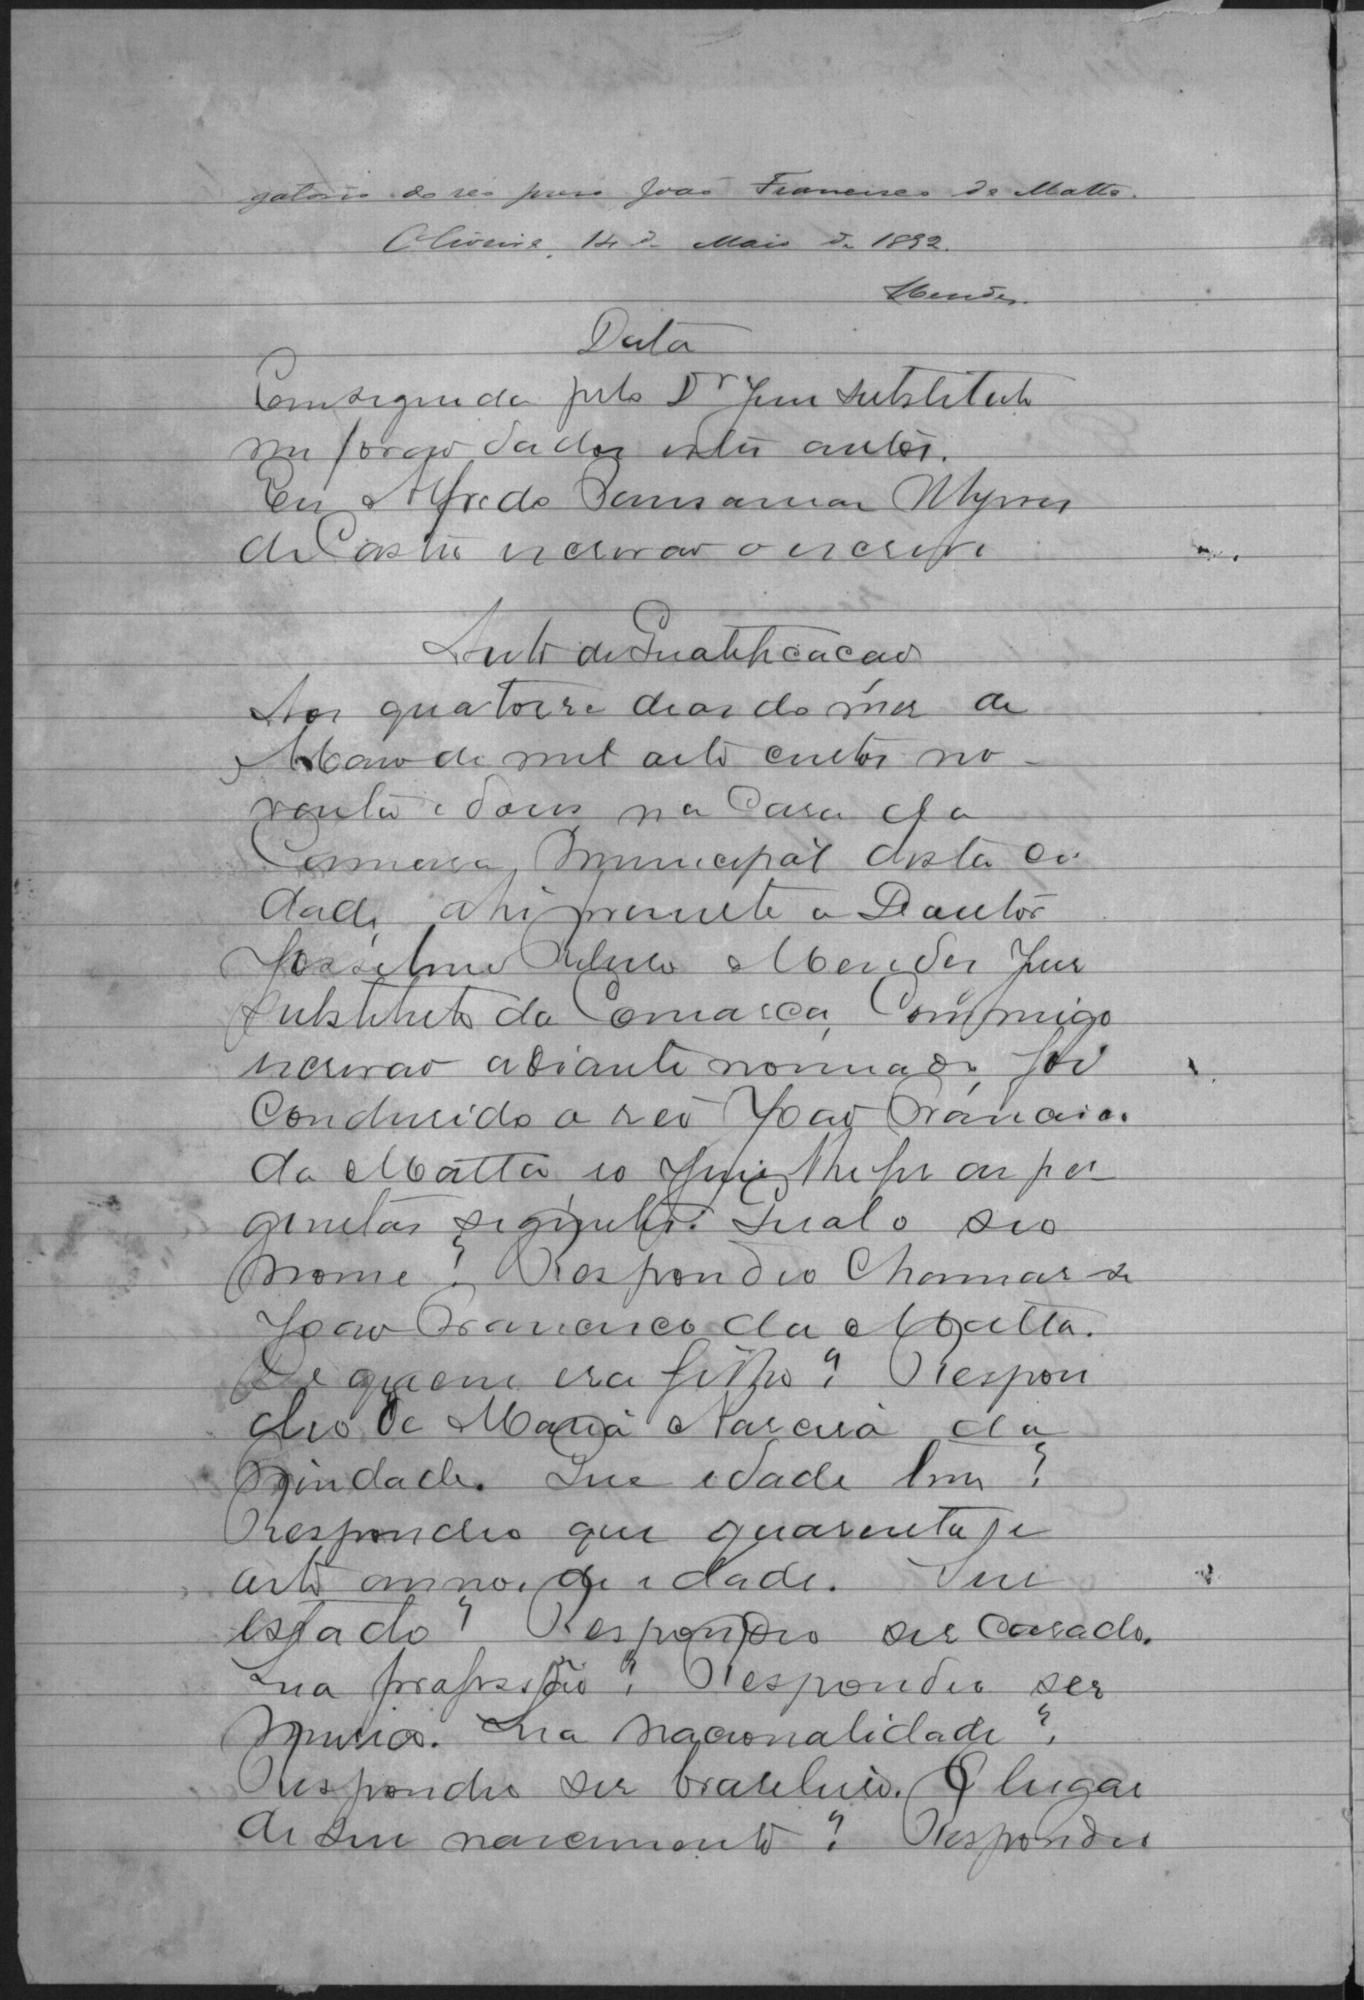 gatorio do reo preso João Francisco da Matta.
Oliveira, 14 de Maio de 1892.
Mendes.
Data
Em seguida pelo Dr Juis substituto
me forão dados estes autos.
Eu Alfredo de Castro
escrivão o escrevi
Auto de Qualificacão
Aos quatorze dias do mes de
Maio de mil oito centos no-
venta e dous na Casa da
Camara Municipal desta ci
dade, ahi presente o Doutor
Mendes Juis
substituto da Comarca, Commigo
escrivão adiante nomeado, foi
Condusido o reo João Francisco
da Matta e o Juis lhe fes as per
guntas seguintes: Qual o seo
nome? Respondeo Chamar se
João Francisco da Matta.
De quem era filho? Respon
deo de Maria Narcisa da
Trindade. Que idade tem?
Respondeo que quarenta e
oito annos de idade. Seu
estado? Respondeo ser Casado.
Sua profissão? Respondeo ser
Musico. Sua nacionalidade?
Respondeo ser brasileiro. O lugar
de seu nascimento? Respondeo